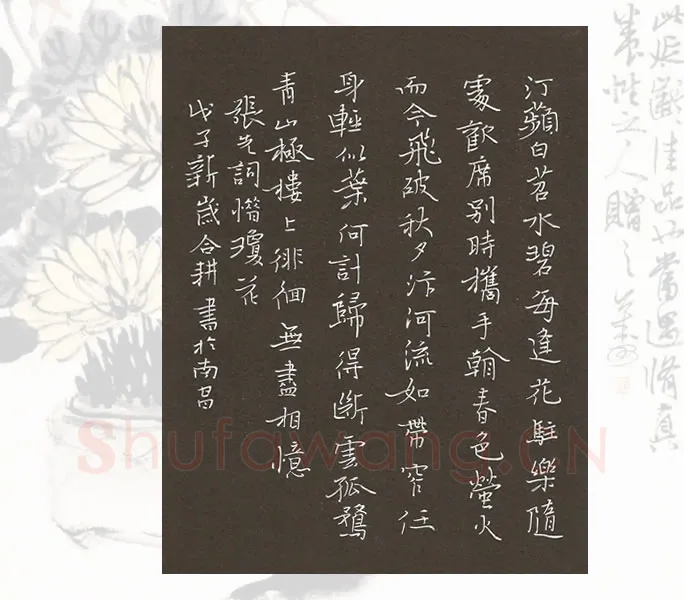 汀蘋白苕水碧每逢花駐樂隨
處歡席別時攜手翰春色螢火
而今飛破秋夕汴河流如帶窄任
身輕似葉何計歸得斷雲孤鶩
青山極樓上徘徊無盡相憶
張先詞惜瓊花
戊子新歲合耕書於南昌
此延齡佳品也常遇脩真
養性之人贈之
Shufawang.CN